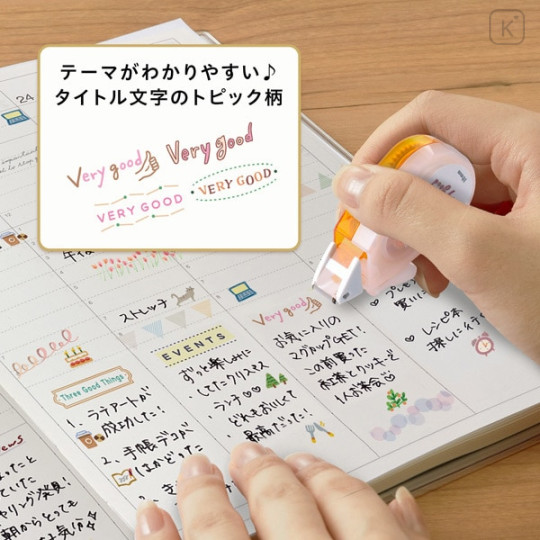 K
テーマがわかりやすい♪
タイトル文字のトピック柄
Very good
Very good
VERY GOOD
VERY GOOD
24
午後
ストレッチ
Three Good Things
1、ラテアートが
成功したー!
2、手帳デコが
はかどった
EVENTS
ずっと楽しみに
してたクリスマス
ランチ♡♡
どれもおいしくて
最高だったー!
Very good
お気に入りの
マグカップGET!
この前買った
紅茶とクッキーで
1人お茶会♡
♡プレゼ
買いに
♡レシピ本
探しに行
ews
まったと
ていた
ヤリング発見!
朝からとっても
な気分